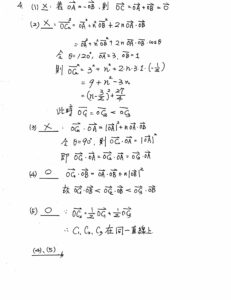 4. (1) X : 若 OA = -OB, 則 OC = OA + OB = O
(2) X : OCₙ² = OA² + n²OB² + 2n OA·OB
= OA² + n²OB² + 2n OA·OB·cosθ
令 θ=120°, OA=3, OB=1
則 OCₙ² = 3² + n² + 2n·3·1·(-1/2)
= 9 + n² - 3n
= (n - 3/2)² + 27/4
此時 OC₁ = OC₂ < OC₃
(3) X : OC₁·OA = |OA|² + nOA·OB
令 θ=90°, 則 OC₁·OA = |OA|²
即 OC₁·OA = OC₂·OA = OC₃·OA
(4) O : OCₙ·OB = OA·OB + n|OB|²
故 OC₁·OB < OC₂·OB < OC₃·OB
(5) O : ∵ OC₂ = 1/2 OC₁ + 1/2 OC₃
∴ C₁, C₂, C₃ 在同一直線上
(4), (5)